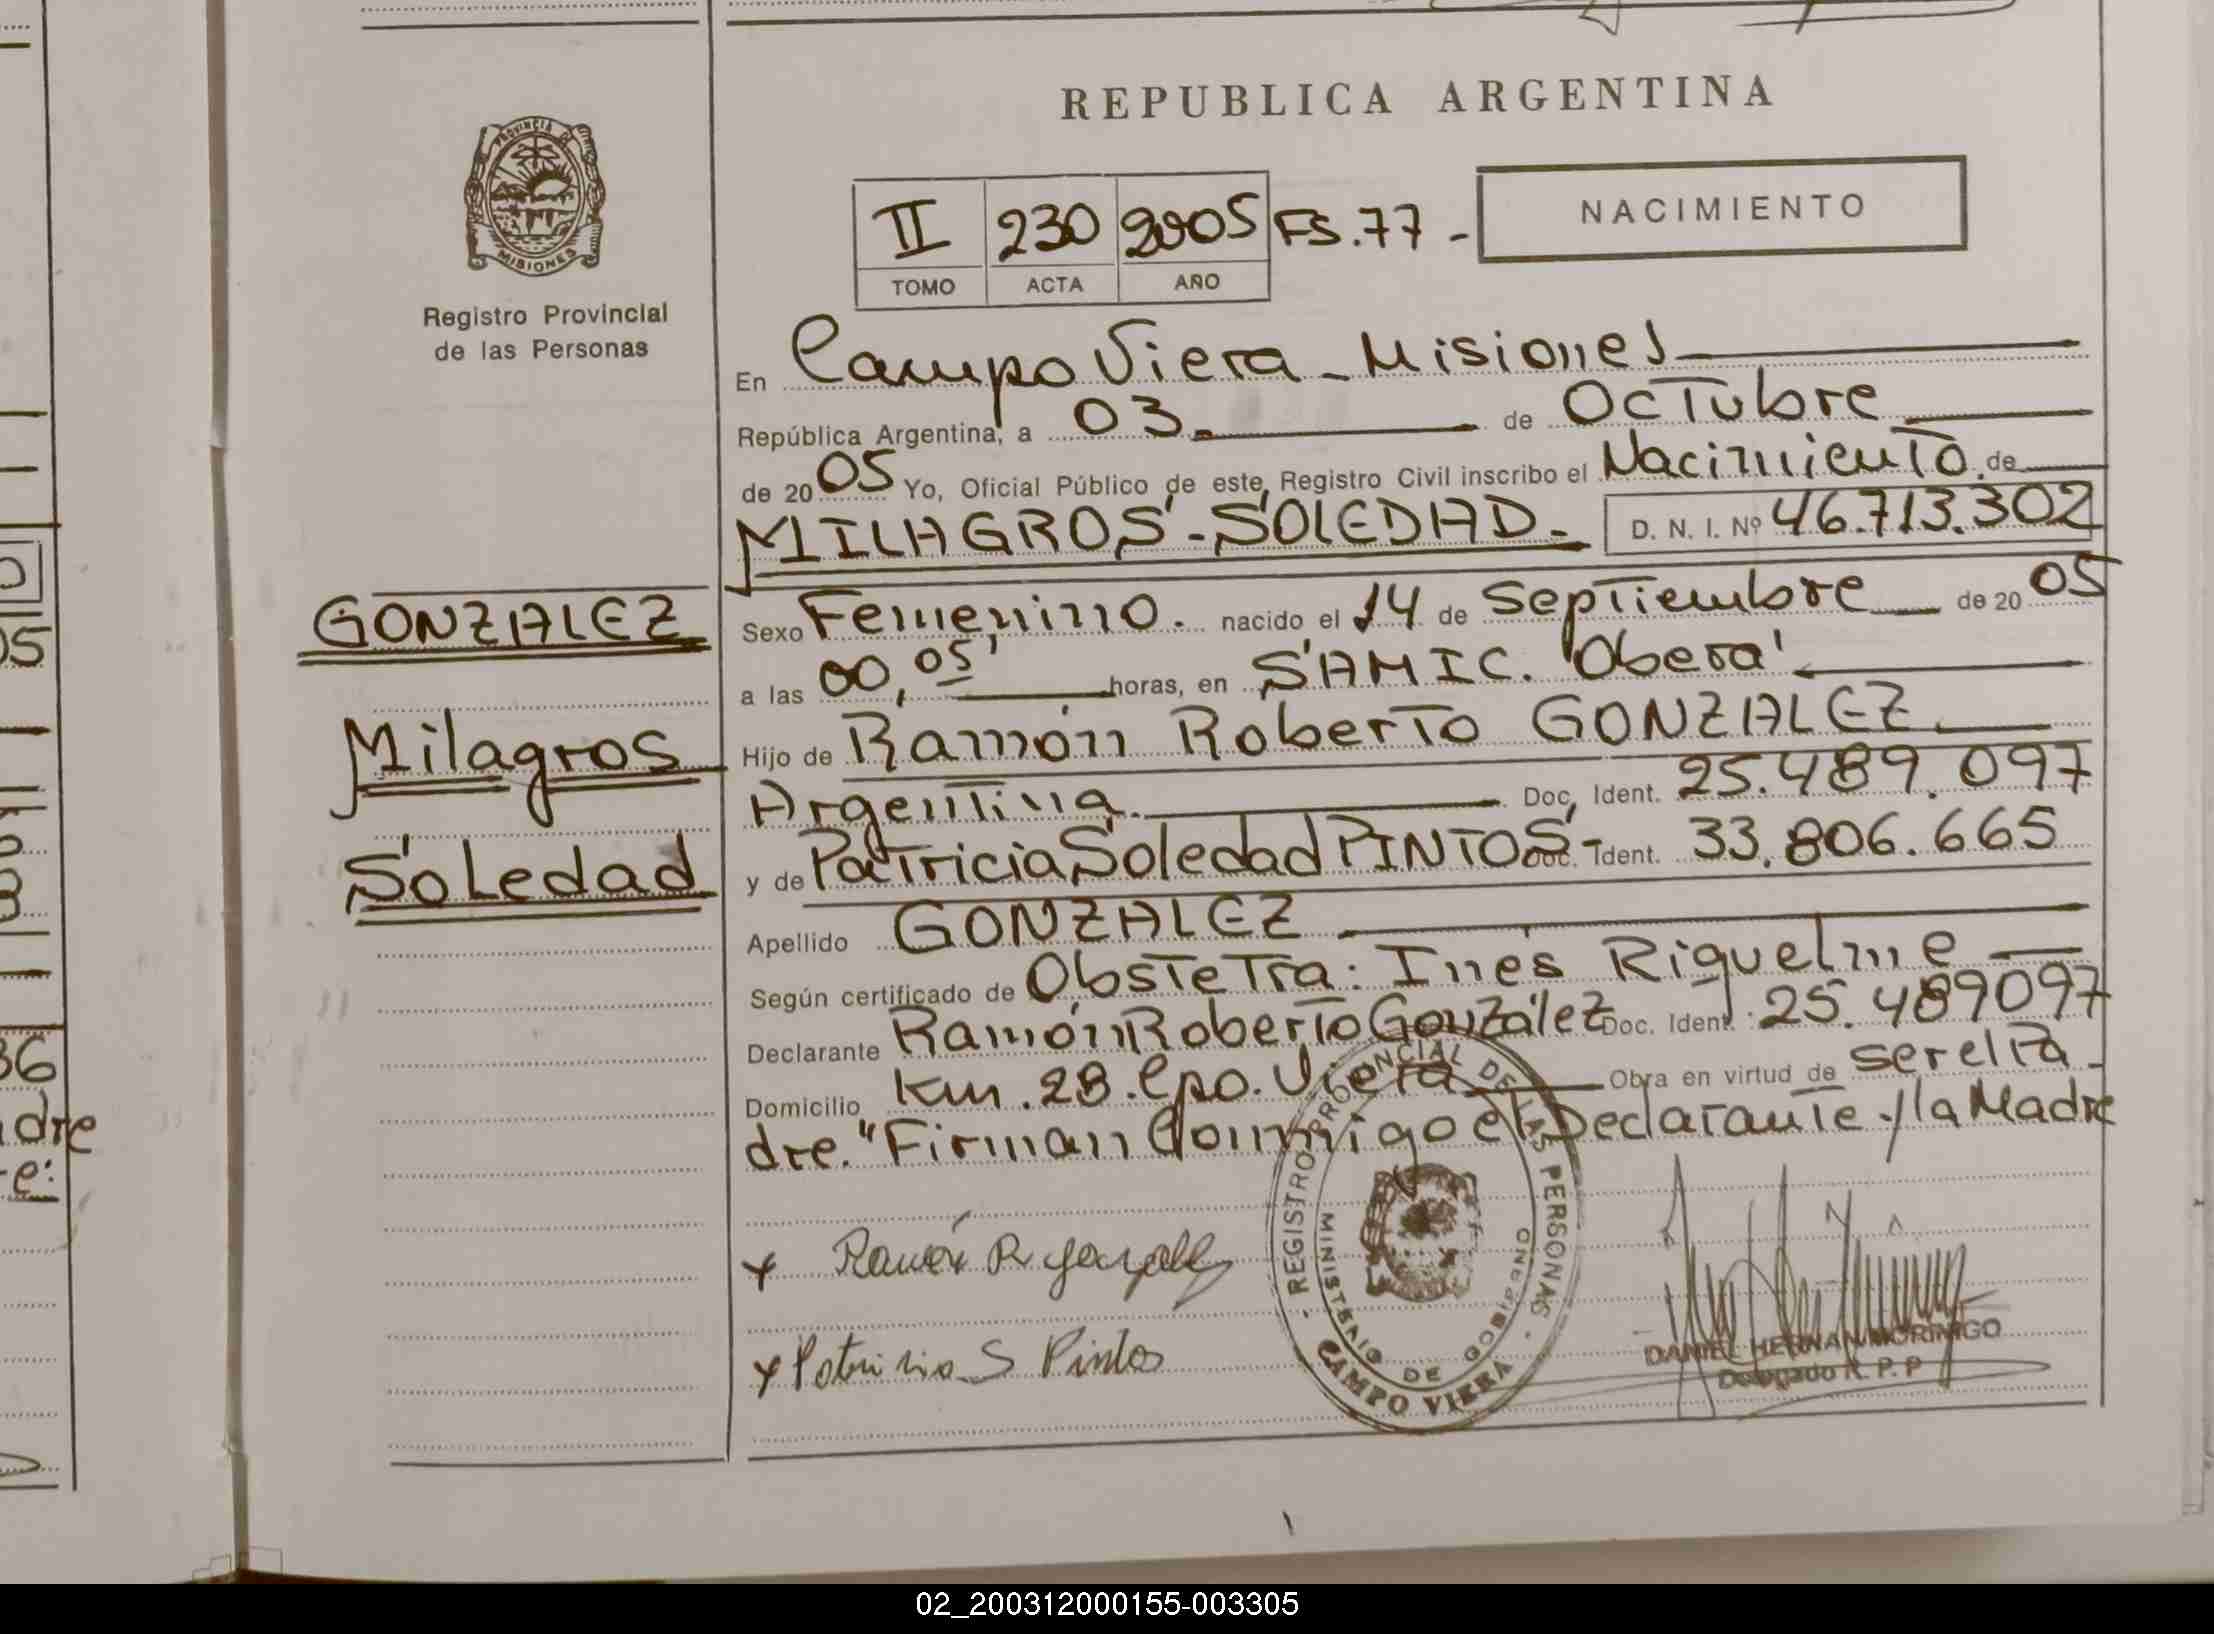 REPUBLICA ARGENTINA
PROVINCIA DE
MISIONES
Registro Provincial
de las Personas
II 230 2005 FS.77 -
TOMO ACTA AÑO
NACIMIENTO
En Campo Viera - Misiones
República Argentina, a 03. de Octubre
de 2005 Yo, Oficial Público de este Registro Civil inscribo el Nacimiento de
MILAGROS - SOLEDAD.- D. N. I. Nº 46.713.302
GONZALEZ
Milagros
Soledad
Sexo Femenino. nacido el 14 de Septiembre de 2005
a las 00,05' horas, en SAMIC. Oberá
Hijo de Ramón Roberto GONZALEZ.
Argentina. Doc. Ident. 25.489.097
y de Patricia Soledad PINTOS- Doc. Ident. 33.806.665
Apellido GONZALEZ
Según certificado de Obstetra: Inés Riquelme
Declarante Ramón Roberto González Doc. Ident. 25.489097
Domicilio Km. 28. Cpo. Viera Obra en virtud de ser el Pa-
dre." Firman Conmigo el Declarante y la Madre
x Ramón R Gonzalez
x Patricia S Pintos
REGISTRO PROVINCIAL DE LAS PERSONAS
MINISTERIO DE GOBIERNO
CAMPO VIERA
DANIEL HERNAN MORINIGO
Delegado R. P. P
05
36
dre
e:
02_200312000155-003305